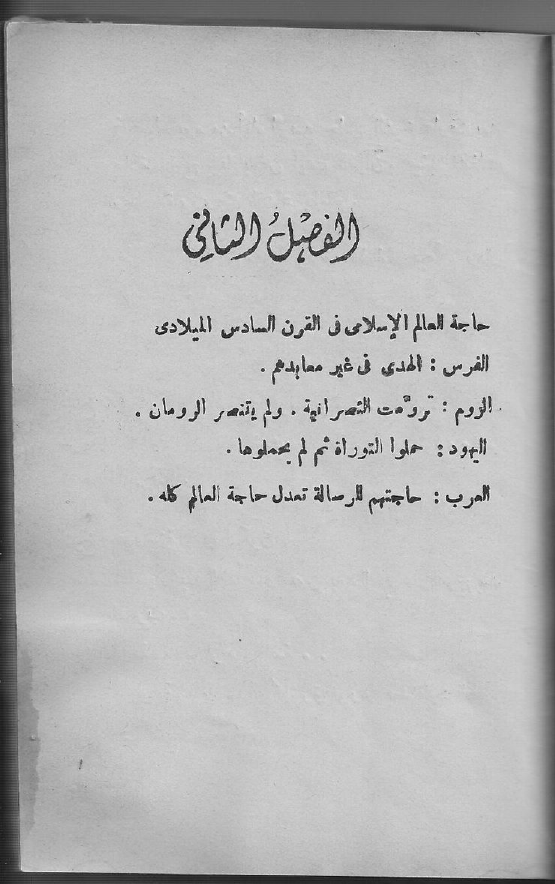 الفصل الثاني
حاجة العالم الإسلامى فى القرن السادس الميلادى
الفرس : الهدى فى غير معابدهم .
الروم : تروّمت النصرانية . ولم يتنصر الرومان .
اليهود : حملوا التوراة ثم لم يحملوها .
العرب : حاجتهم للرسالة تعدل حاجة العالم كله .